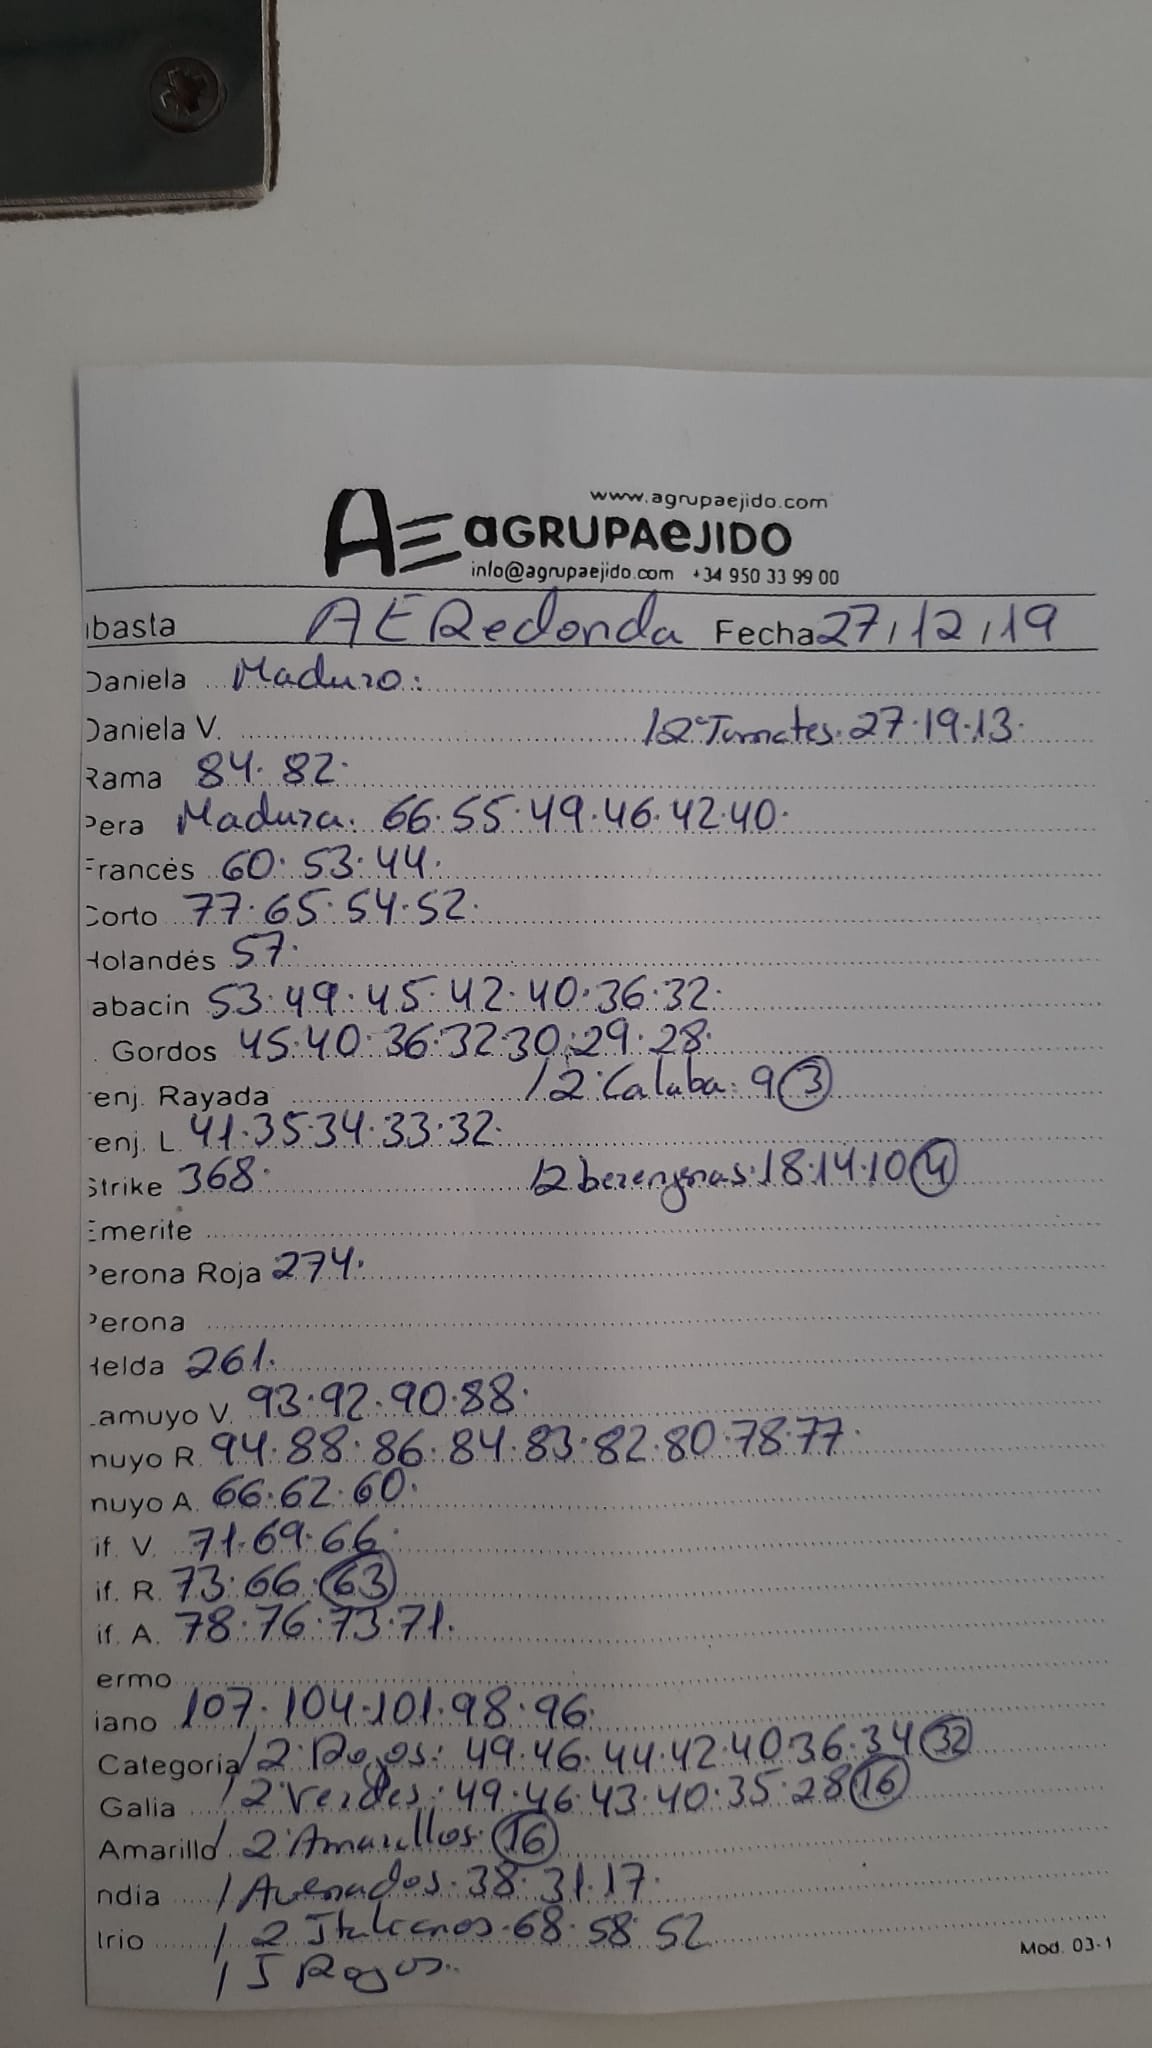 www.agrupaejido.com
AE aGRUPAeJIDO
info@agrupaejido.com +34 950 33 99 00
ubasta AE Redonda Fecha 27/12/19
Daniela Maduro:
Daniela V. / 2ª Tomates. 27.19.13.
Rama 84. 82.
Pera Madura. 66.55.49.46.42.40.
Francés 60. 53. 44.
Corto 77. 65. 54. 52.
Holandés 57.
abacin 53. 49. 45. 42. 40. 36. 32.
. Gordos 45. 40. 36. 32. 30. 29. 28.
enj. Rayada / 2ª Calaba: 9 3
enj. L. 41. 35. 34. 33. 32.
Strike 368. / 2 berengenas. 18.14.10 4
Emerite
Perona Roja 274.
Perona
Helda 261.
Lamuyo V. 93. 92. 90. 88.
nuyo R. 94. 88. 86. 84. 83. 82. 80. 78. 77.
nuyo A. 66. 62. 60.
if. V. 71. 69. 66.
if. R. 73. 66. 63
if. A. 78. 76. 73. 71.
ermo
iano 107. 104. 101. 98. 96.
Categoria / 2ª Rojos: 49. 46. 44. 42. 40. 36. 34 32
Galia / 2 Verdes: 49. 46. 43. 40. 35. 28 16
Amarillo / 2ª Amarillos. 16
ndia / Asurados. 38. 31. 17.
lrio / 2 Italianos. 68. 58. 52
/ I Rojos.
Mod. 03-1